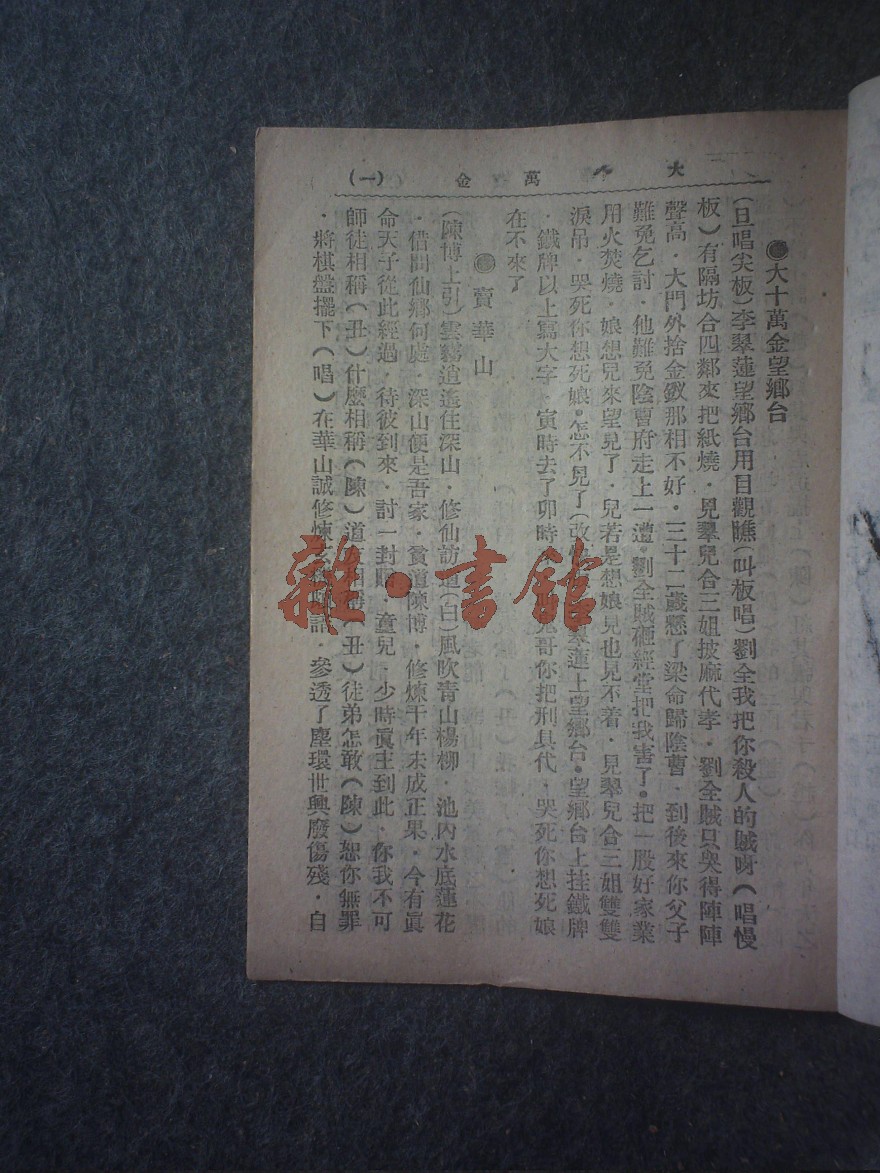 大十萬金 (一)
●大十萬金望鄉台
(旦唱尖板)李翠蓮望鄉台用目觀瞧(叫板唱)劉全我把你殺人的賊呀(唱慢
板)有隔坊合四鄰來把紙燒·見翠兒合三姐披麻代孝·劉全賊只哭得陣陣
聲高·大門外捨金釵那相不好·三十二歲懸了梁命歸陰曹·到後來你父子
難免乞討·他難免陰曹府走上一遭·劉全賊砸經堂把我害了●把一股好家業
用火焚燒·娘想兒來望見了·兒若是想娘見也見不着·見翠兒合三姐雙雙
淚吊·哭死你想死娘·怎不見了(改 翠蓮上望鄉台●望鄉台上挂鐵牌
·鐵牌以上寫大字·寅時去了卯時 鬼哥你把刑具代·哭死你想死娘
在不來了
●賣華山
(陳博上引)雲霧逍遙住深山·修仙訪道(白)風吹青山楊柳·池內水底蓮花
·借問仙鄉何處·深山便是吾家·貧道陳博·修煉千年未成正果·今有眞
命天子從此經過·待彼到來·討一封賜·童兒·少時眞主到此·你我不可
師徒相稱(丑)什麼相稱(陳)道 相稱(丑)徒弟怎敢(陳)恕你無罪
·將棋盤擺下(唱)在華山誠修煉 ·參透了塵環世興廢傷殘·自
雜·書館